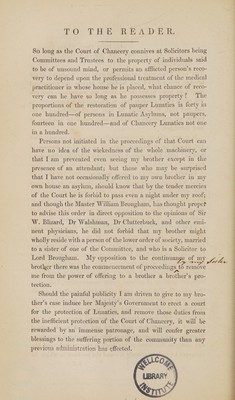 TO THE READER.
So long as the Court of Chancery connives at Solicitors being
Committees and Trustees to the property of individuals said
to be of unsound mind, or permits an afflicted person's reco-
very to depend upon the professional treatment of the medical
practitioner in whose house he is placed, what chance of reco-
very can he have so long as he possesses property? The
proportions of the restoration of pauper Lunatics is forty in
one hundred—of persons in Lunatic Asylums, not paupers,
fourteen in one hundred—and of Chancery Lunatics not one
in a hundred.
Persons not initiated in the proceedings of that Court can
have no idea of the wickedness of the whole machinery, or
that I am prevented even seeing my brother except in the
presence of an attendant; but those who may be surprised
that I have not occasionally offered to my own brother in my
own house an asylum, should know that by the tender mercies
of the Court he is forbid to pass even a night under my roof;
and though the Master William Brougham, has thought proper
to advise this order in direct opposition to the opinions of Sir
W. Blizard, Dr Walshman, Dr Clutterbuck, and other emi-
nent physicians, he did not forbid that my brother might
wholly reside with a person of the lower order of society, married
to a sister of one of the Committee, and who is a Solicitor to
Lord Brougham. My opposition to the continuance of my
brother there was the commencement of proceedings to remove
me from the power of offering to a brother a brother's pro-
tection.
Should the painful publicity I am driven to give to my bro-
ther's case induce her Majesty's Government to erect a court
for the protection of Lunatics, and remove those duties from
the inefficient protection of the Court of Chancery, it will be
rewarded by an immense patronage, and will confer greater
blessings to the suffering portion of the community than any
previous administration has effected.
WELLCOME
LIBRARY
INSTITUTE